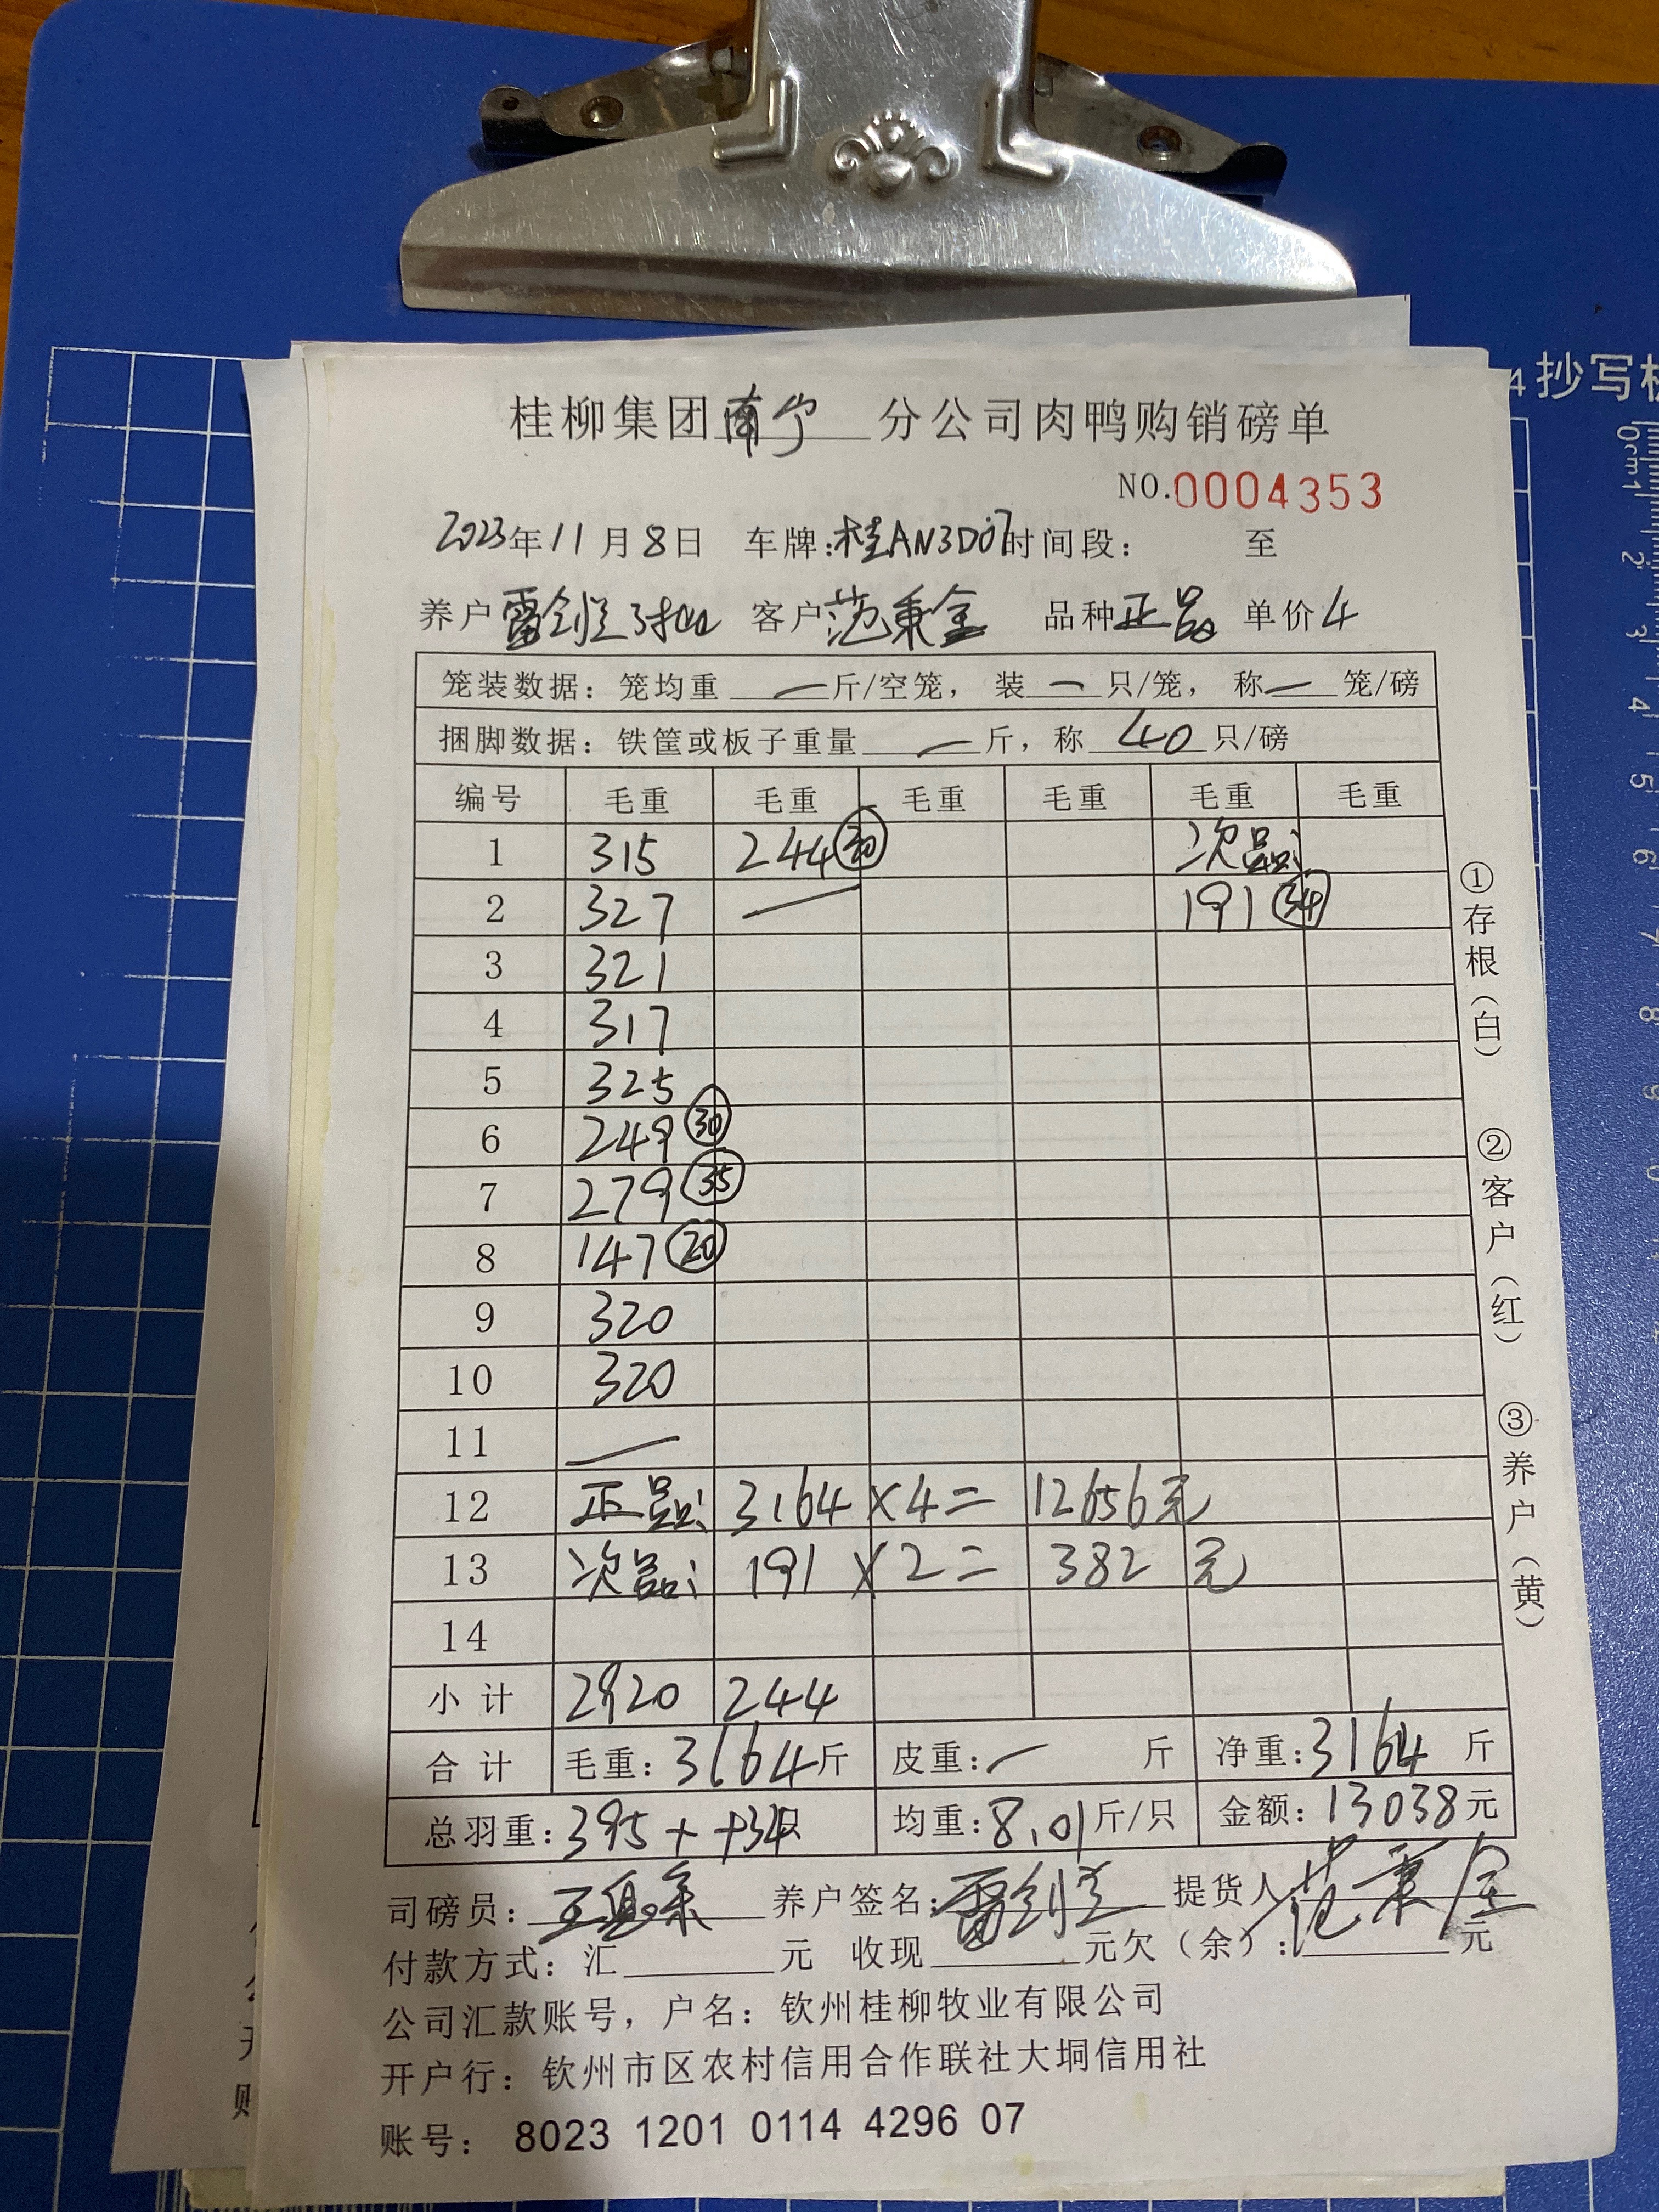 抄写板
0cm1 2 3 4 5 6 7 8 9
桂柳集团南宁分公司肉鸭购销磅单
NO.0004353
2023年11月8日 车牌:桂AN3D07时间段: 至
养户雷剑兰 客户范秉金 品种正品 单价4
笼装数据:笼均重 — 斤/空笼, 装 — 只/笼, 称 — 笼/磅
捆脚数据:铁筐或板子重量 — 斤,称 40 只/磅
编号 毛重 毛重 毛重 毛重 毛重 毛重
1 315 244 30 次品:
2 327 — 191 34
3 321
4 317
5 325
6 249 30
7 279 35
8 147 20
9 320
10 320
11 —
12 正品: 3164 ×4= 12656元
13 次品: 191 ×2= 382 元
14
小计 2920 244
合计 毛重:3164斤 皮重:— 斤 净重:3164 斤
总羽重:395++34只 均重:8.01斤/只 金额:13038元
司磅员: 养户签名:雷剑兰 提货人 范秉金
付款方式:汇 元 收现 元欠(余): 元
公司汇款账号,户名:钦州桂柳牧业有限公司
开户行:钦州市区农村信用合作联社大垌信用社
账号: 8023 1201 0114 4296 07
①存根(白) ②客户(红) ③养户(黄)